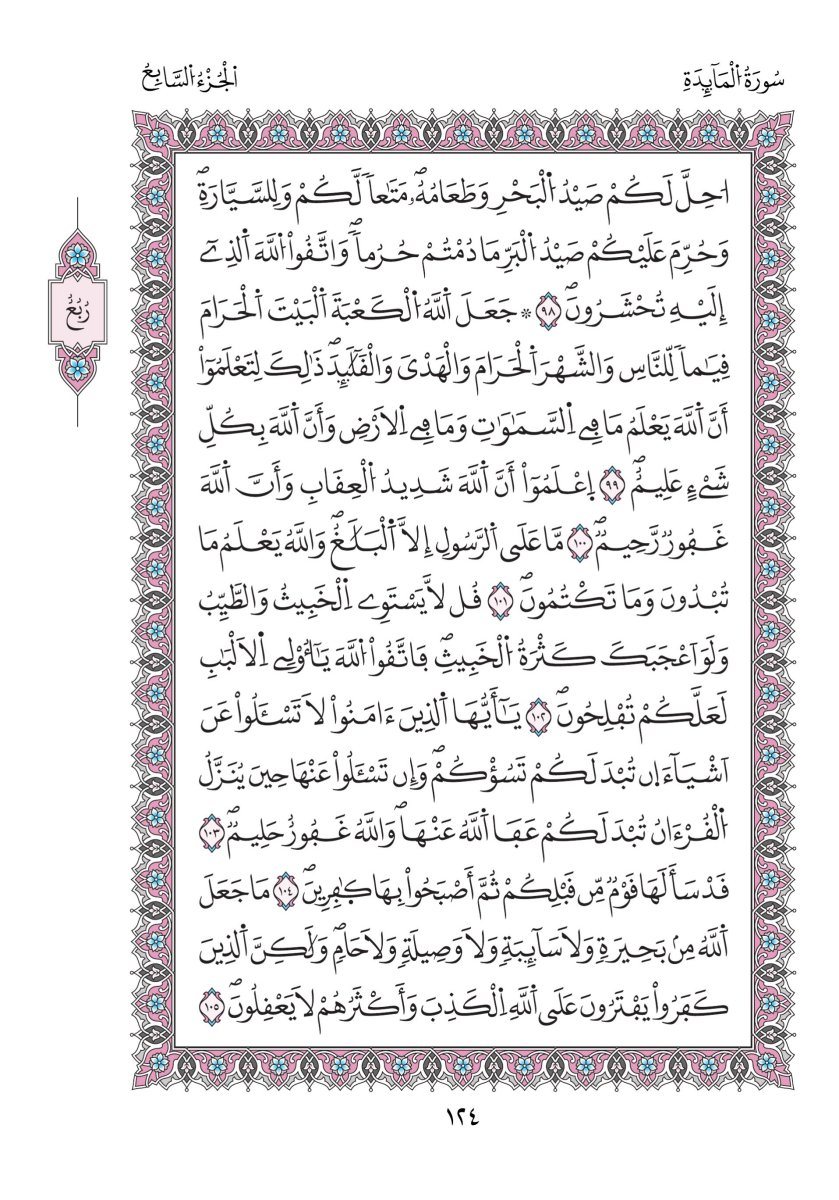 سُورَةُ اُ۬لْمَآئِدَةِ
اَ۬لْجُزْءُ اُ۬لسَّابِعُ
اُحِلَّ لَكُمْ صَيْدُ اُ۬لْبَحْرِ وَطَعَامُهُۥۖ مَتَٰعاٗ لَّكُمْ وَلِلسَّيَّارَةِۖ
وَحُرِّمَ عَلَيْكُمْ صَيْدُ اُ۬لْبَرِّ مَا دُمْتُمْ حُرُماٗۖ وَاتَّقُواْ اُ۬للَّهَ اَ۬لذِےٓ
إِلَيْهِ تُحْشَرُونَۖ ٩٨ * جَعَلَ اَ۬للَّهُ اُ۬لْكَعْبَةَ اَ۬لْبَيْتَ اَ۬لْحَرَامَ
قِيَٰماٗ لِّلنَّاسِ وَالشَّهْرَ اَ۬لْحَرَامَ وَالْهَدْيَ وَالْقَلَٰٓئِدَۖ ذَٰلِكَ لِتَعْلَمُوٓاْ
أَنَّ اَ۬للَّهَ يَعْلَمُ مَا فِے اِ۬لسَّمَٰوَٰتِ وَمَا فِے اِ۬لَارْضِ وَأَنَّ اَ۬للَّهَ بِكُلِّ
شَےْءٍ عَلِيمٌۖ ٩٩ اِ۪عْلَمُوٓاْ أَنَّ اَ۬للَّهَ شَدِيدُ اُ۬لْعِقَابِ وَأَنَّ اَ۬للَّهَ
غَفُورٞ رَّحِيمٞۖ ١٠٠ مَّا عَلَي اَ۬لرَّسُولِ إِلَّا اَ۬لْبَلَٰغُۖ وَاللَّهُ يَعْلَمُ مَا
تُبْدُونَ وَمَا تَكْتُمُونَۖ ١٠١ قُل لَّا يَسْتَوِے اِ۬لْخَبِيثُ وَالطَّيِّبُ
وَلَوَ اَعْجَبَكَ كَثْرَةُ اُ۬لْخَبِيثِۖ فَاتَّقُواْ اُ۬للَّهَ يَٰٓأُوْلِے اِ۬لَالْبَٰبِ
لَعَلَّكُمْ تُفْلِحُونَۖ ١٠٢ يَٰٓأَيُّهَا اَ۬لذِينَ ءَامَنُواْ لَا تَسْـَٔلُواْ عَنَ
اَشْيَآءَ ا۪ن تُبْدَ لَكُمْ تَسُؤْكُمْۖ وَإِن تَسْـَٔلُواْ عَنْهَا حِينَ يُنَزَّلُ
اُ۬لْقُرْءَانُ تُبْدَ لَكُمْ عَفَا اَ۬للَّهُ عَنْهَاۖ وَاللَّهُ غَفُورٌ حَلِيمٞۖ ١٠٣
قَدْ سَأَلَهَا قَوْمٞ مِّن قَبْلِكُمْ ثُمَّ أَصْبَحُواْ بِهَا كَٰفِرِينَۖ ١٠٤ مَا جَعَلَ
اَ۬للَّهُ مِنۢ بَحِيرَةٖ وَلَا سَآئِبَةٖ وَلَا وَصِيلَةٖ وَلَا حَامٖۖ وَلَٰكِنَّ اَ۬لذِينَ
كَفَرُواْ يَفْتَرُونَ عَلَي اَ۬للَّهِ اِ۬لْكَذِبَ وَأَكْثَرُهُمْ لَا يَعْقِلُونَۖ ١٠٥
رُبُعُ
١٢٤